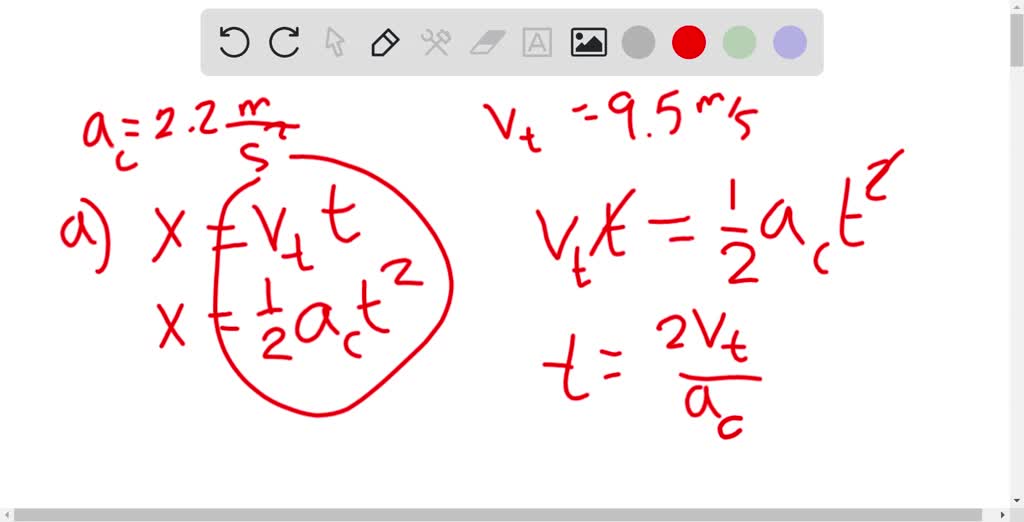 a_c = 2.2 m/s²
v_t = 9.5 m/s
a) x = v_t t
x = 1/2 a_c t²
v_t t = 1/2 a_c t²
t = 2v_t/a_c